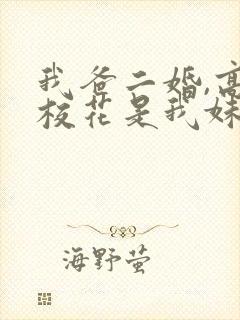 我爸二婚,高
校花是我妹
海野萤